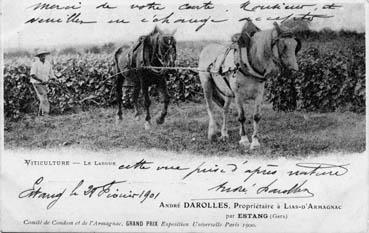 merci de votre carte. Monsieur, et
veuillez en échange accepter
VITICULTURE — LE LABOUR
cette vue prise d'après nature
André Darolles
ANDRÉ DAROLLES, Propriétaire à LIAS-D'ARMAGNAC
Estang le 28 Février 1901
par ESTANG (Gers)
Comité de Condom et de l'Armagnac, GRAND PRIX Exposition Universelle Paris 1900.